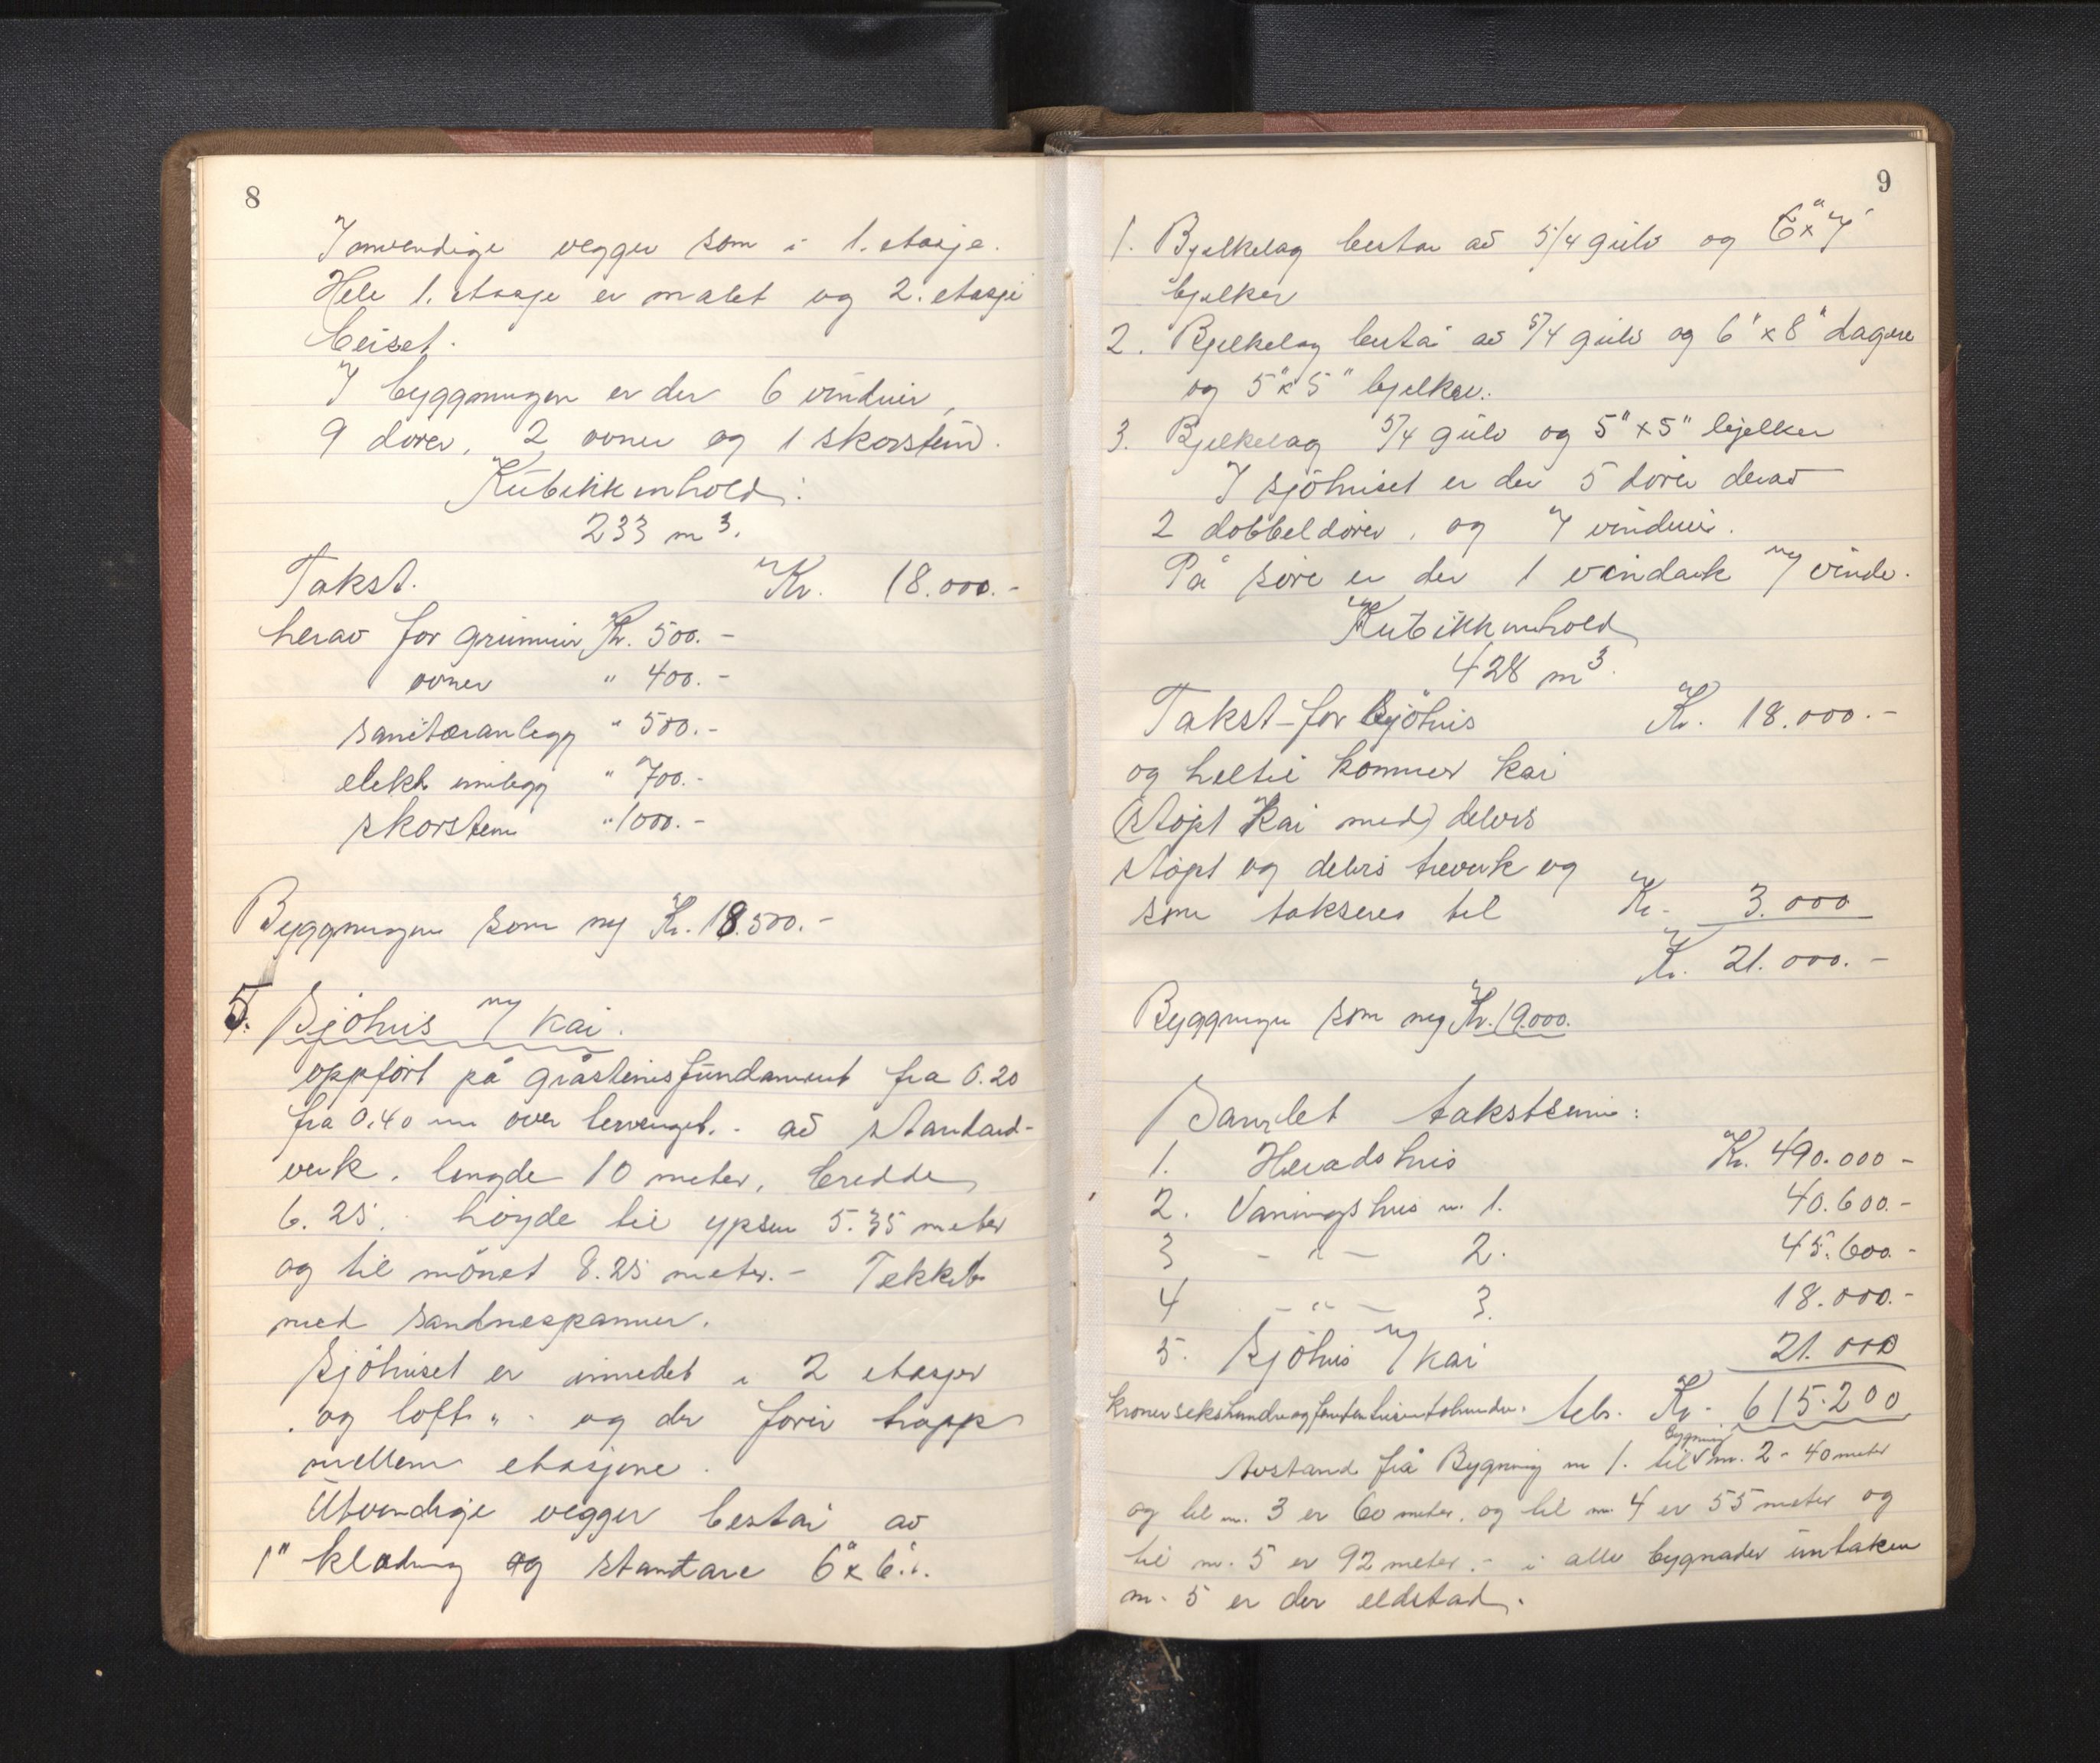 8
Innvendige vegger som i 1. etasje.
Hele 1. etasje er malet og 2. etasje
beiset.
I byggningen er der 6 vinduer,
9 dører, 2 ovner og 1 skorstein.
Kubikkinhold:
233 m³.
Takst. Kr. 18.000.-
herav for grunnmur Kr. 500.-
ovner " 400.-
sanitæranlegg " 500.-
elektr. innlegg " 700.-
skorstein " 1000.-
Byggningen som ny Kr. 18.500.-
5. Sjöhus m/ kai.
oppfört på gråsteinsfundament fra 0.20
fra 0.40 m over terrenget. - av standard-
verk. lengde 10 meter, bredde
6.25. høyde til ypsen 5.35 meter
og til mönet 8.25 meter. - Tekket
med sandnespanner.
Sjöhuset er innredet i 2 etasjer
og loft " - og der förer trapp
mellem etasjene.
Utvendige vegger består av
1" kledning og standare 6" x 6".
9
1. Bjelkelag bestar av 5/4 gulv og 6" x 7"
bjelker
2. Bjelkelag består av 5/4 gulv og 6" x 8" dagere
og 5" x 5" bjelker.
3. Bjelkelag 5/4 gulv og 5" x 5" bjelker
I sjöhuset er der 5 dörer derav
2 dobbeldörer, og 7 vinduer.
På söre er der 1 vindark m/ vindu.
Kubikkinhold
428 m³.
Takst for Sjöhus Kr. 18.000.-
og heltil kommer kai
(støpt kai med) delvis
støpt og delvis treverk og
som takseres til Kr. 3.000
Kr. 21.000.-
Byggningen som ny Kr. 19.000.
Samlet takstsum:
1. Heradshus Kr. 490.000 -
2. Vaningshus nr. 1. 40.600.-
3 - " - 2. 45.600.-
4 - " - 3. 18.000.-
5. Sjöhus m/ kai 21.000
kroner sekshundreogfemtentusentohundre. tils. Kr. 615.200
Avstand frå Bygning nr 1. til bygning nr. 2 - 40 meter
og til nr. 3 er 60 meter, og til nr. 4 er 55 meter og
til nr. 5 er 92 meter. - i alle bygnader untaken
nr. 5 er der eldstad.